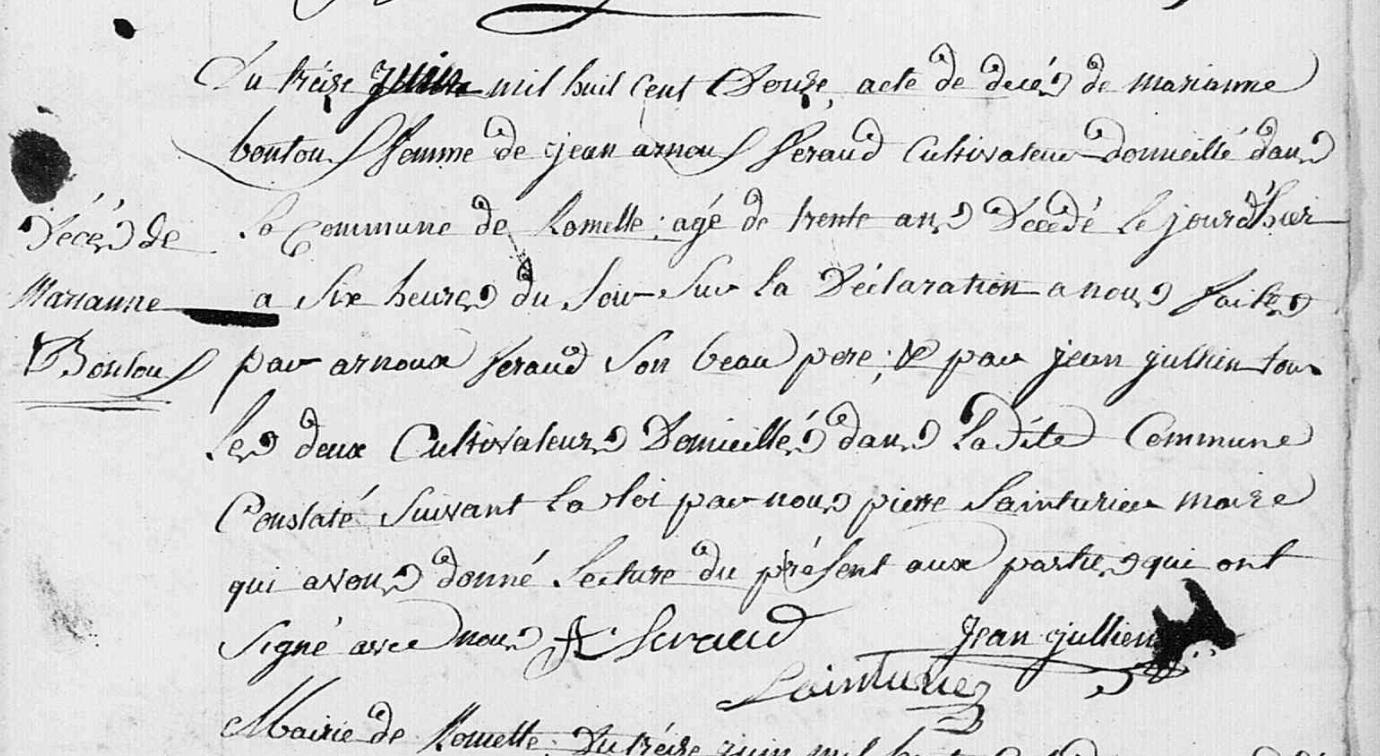 Du treize juin mil huit cent Douze, acte de decés de marianne
bontous femme de jean arnous feraud Cultivateur domicillé dans
la Commune de Romette; agé de trente ans Décedé le jour d'hier
a Six heures du Soir Sur la Déclaration a nous faites
par arnoux feraud Son beau pere; & par jean jullien tous
Les deux Cultivateurs Domicillés dans Ladite Commune
Constaté Suivant la loi par nous pierre Sainturier maire
qui avons donné lecture du présent aux parties qui ont
Signé avec nous A feraud jean jullien
Sainturier
Décés de
Marianne
Bontous
Mairie de Romette. Du treize juin mil